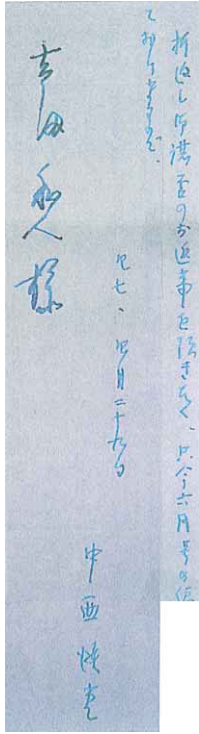 折返し御諾否のお返事を頂きたく、只今六月号の
ておりますので、
四七、四月二十九日
中西悟堂
吉田 様